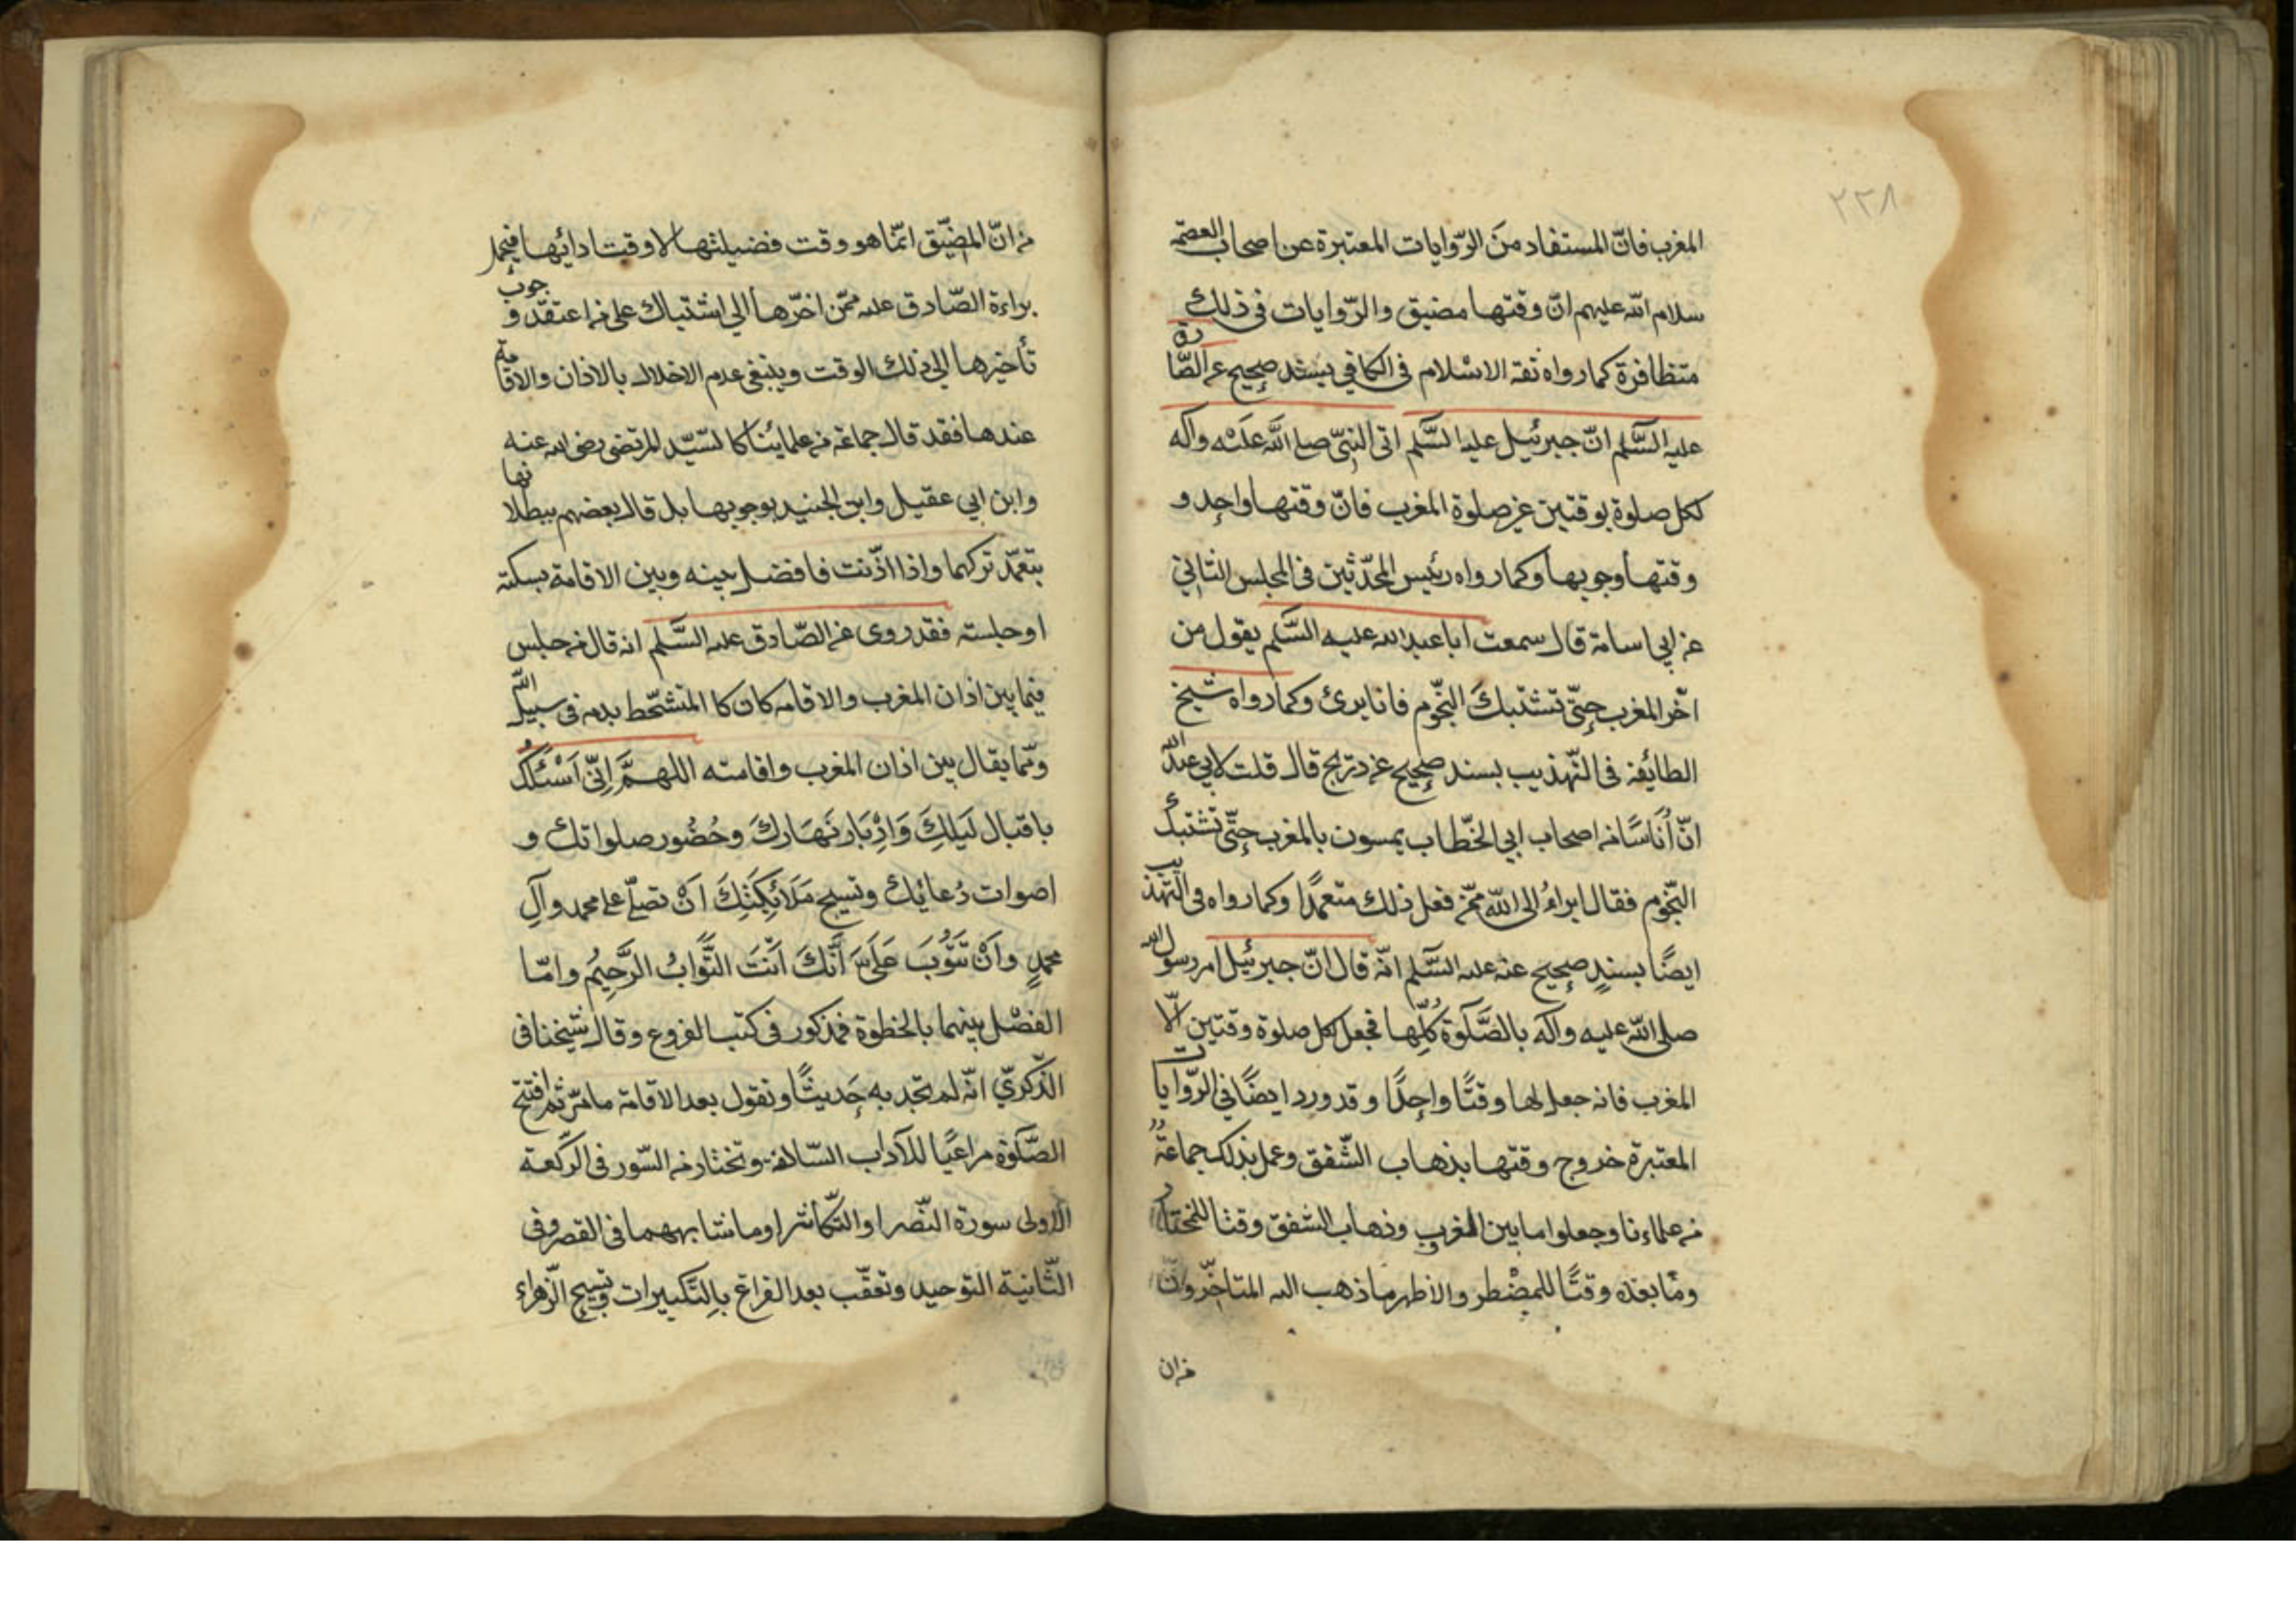 ٢٢٨
المغرب فانّ المستفاد منَ الرّوايات المعتبرة عن اصحاب العصمة
سلام اللّه عليهم انّ وقتها مضيق والرّوايات فى ذلك
متظافرة كما رواه ثقة الاسْلام فى الكافي بسند صحيح عن الصّادق
عليه السَّلم انّ جبرئيل عليه السَّلم اتى النبىّ صلى اللَّه عَليْه وآله
لكل صلوة بوقتين غير صلوة المغرب فانّ وقتها واحد و
وقتها وجوبها وكما رواه رئيس المحدّثين فى المجلس الثاني
عن ابي اسامة قال سمعت ابا عبد الله عليه السَّلم يقول من
اخّر المغرب حتّى تشتبكَ النّجوم فانا برئ وكما رواه شيخ
الطائفة فى التّهذيب بسند صحيح عن ذريح قال قلت لابي عبد اللّه
انّ أُنَاسًا من اصحاب ابي الخّطاب يمسون بالمغرب حتّى تشتبك
النّجوم فقال ابراءُ الى اللّه ممّن فعل ذلك متعمدًا وكما رواه فى التهذيب
ايضًا بسندٍ صحيح عنه عليه السَّلم انّه قال انّ جبرئيل امر رسول الله
صلى اللّه عليه وآله بالصَّلَوة كُلِّها فجعل لكل صلوة وقتين الّا
المغرب فانه جعل لها وقتًا واحدًا وقد ورد ايضًا فى الرّوايات
المعتبرة خروج وقتها بذهاب الشّفق وعمل بذلك جماعةٌ
من علماءنا وجعلوا ما بين المغرب وذهاب الشفق وقتا للمختار
وما بعده وقتًا للمضْطر والاظهر ما ذهب اليه المتاخّرون
من ان
من انّ المضيّق انّما هو وقت فضيلتها لا وقت ادائها فيحمل
براءة الصّادق عليه ممّن اخّرها الى اشتباك على من اعتقد وجوب
تأخيرها الى ذلك الوقت وينبغى عدم الاخلال بالاذان والاقامة
عندها فقد قال جماعة من علمائنا كالسّيّد المرتضى رضى الله عنه
وابن ابي عقيل وابن الجنيد بوجوبها بل قال بعضهم ببطلانها
بتعمّد تركهما واذا اذّنت فافصل بينه وبين الاقامة بسكتة
او جلسته فقد روى عن الصّادق عليه السَّلم انه قال من جلس
فيما بين اذان المغرب والاقامه كان كا المتشحّط بدمه فى سبيل اللّه
وممّا يقال بين اذان المغرب واقامته اللهمَّ اِنّى اَسْئَلُكَ
باقبال لَيلِكَ وَادْبَار نَهَارِكَ وحُضُور صلواتك و
اصوات دُعائك وتسبيح مَلَائِكَتِكَ اَنْ تصلّى على محمد وآلِ
محمدٍ واَنْ تَتُوبَ عَلَىَّ اَنَّكَ اَنْتَ التَّوابُ الرَّحِيُم وامّا
الفصْل بينهما بالخطوة فمذكور فى كتب الفروع وقال شيخنا فى
الذّكرىّ انّه لم تجد به حَديثًا وتقول بعد الاقامة ما مرّ ثم افتتح
الصَّلَوة مراعيًا للآداب السّالفة وتختار من السّور فى الرّكعة
الاولى سورة النّصر او التّكاثر او ما شابههما فى القصر وفى
الثّانية التوحيد وتعقّب بعد الفراغ بالتّكبيرات وتسبيح الزّهراء